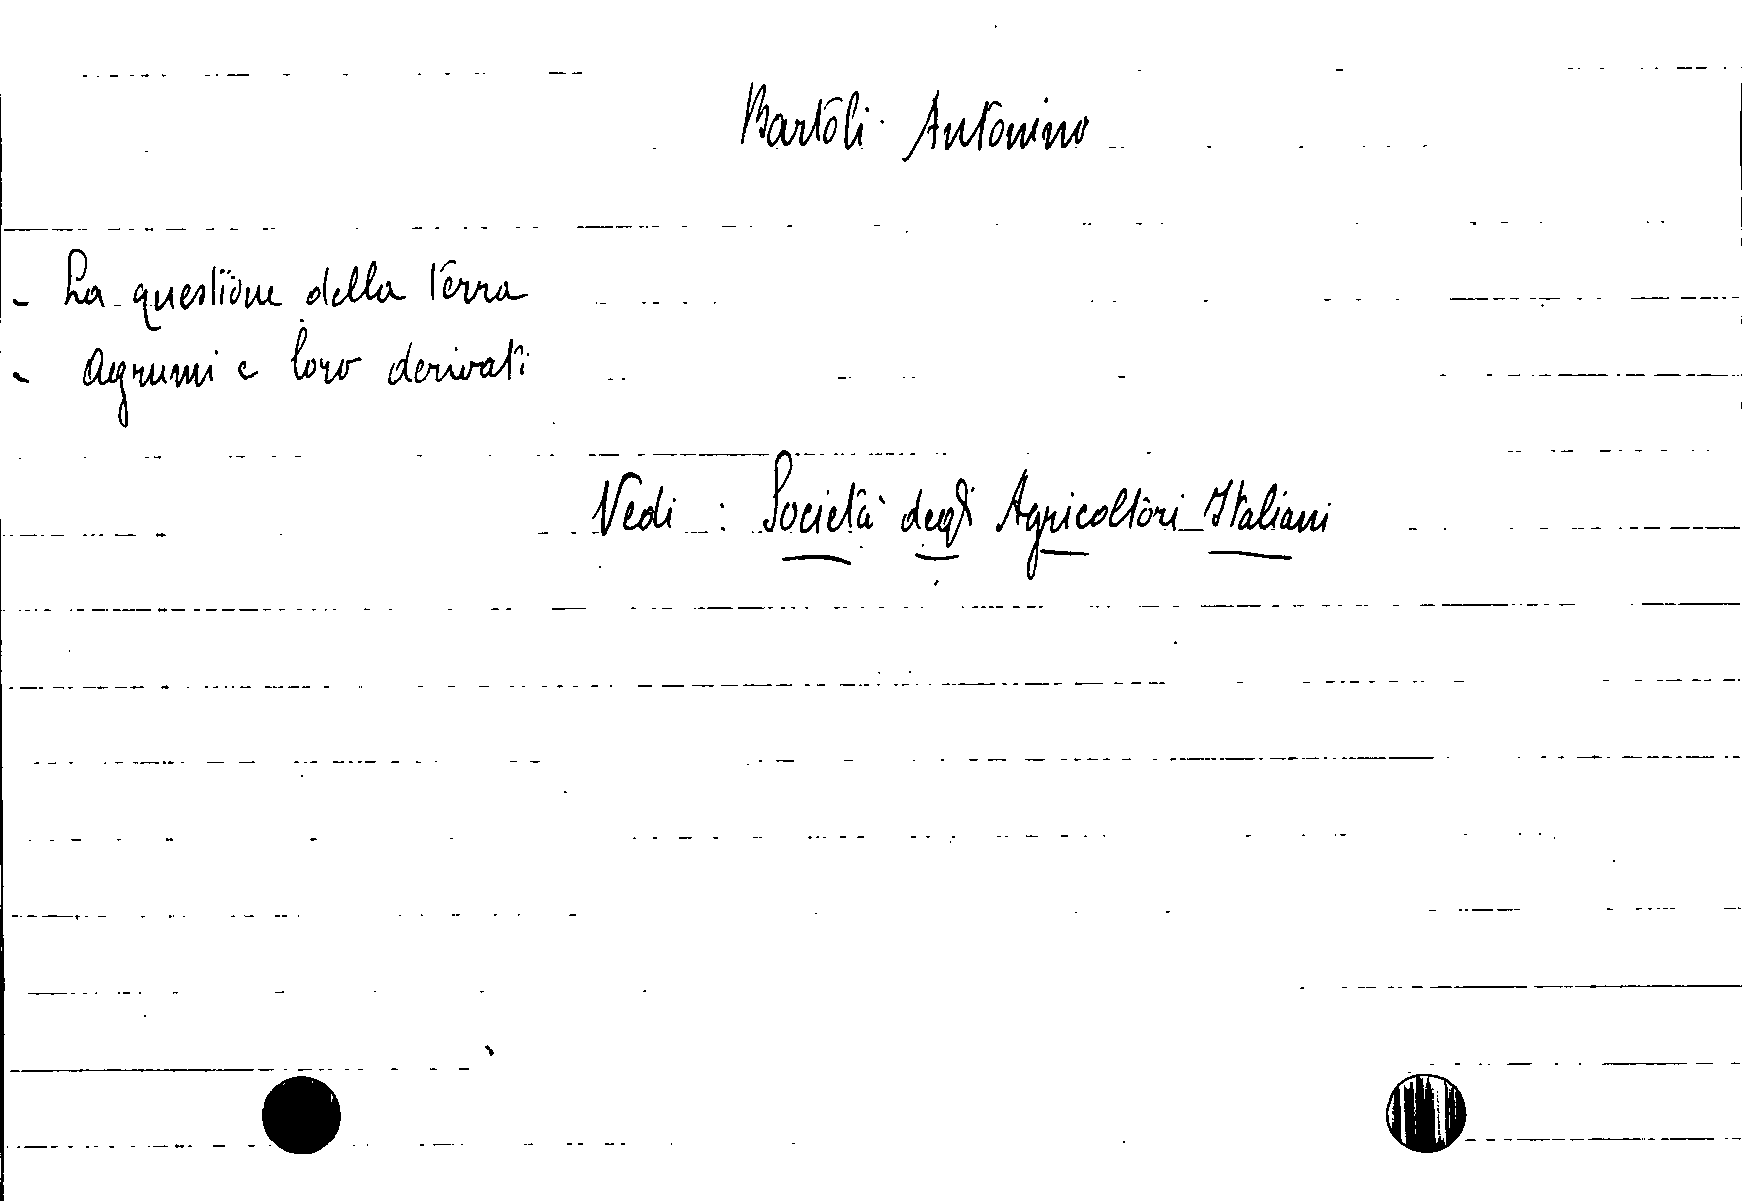 Bartoli Antonino
- La questione della terra
- Agrumi e loro derivati
Vedi : Società degli Agricoltori Italiani